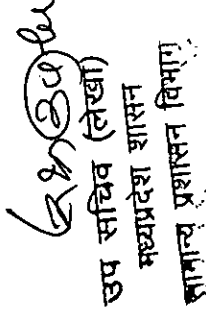 उप सचिव (सेवा)
मध्यप्रदेश शासन
सामान्य प्रशासन विभाग